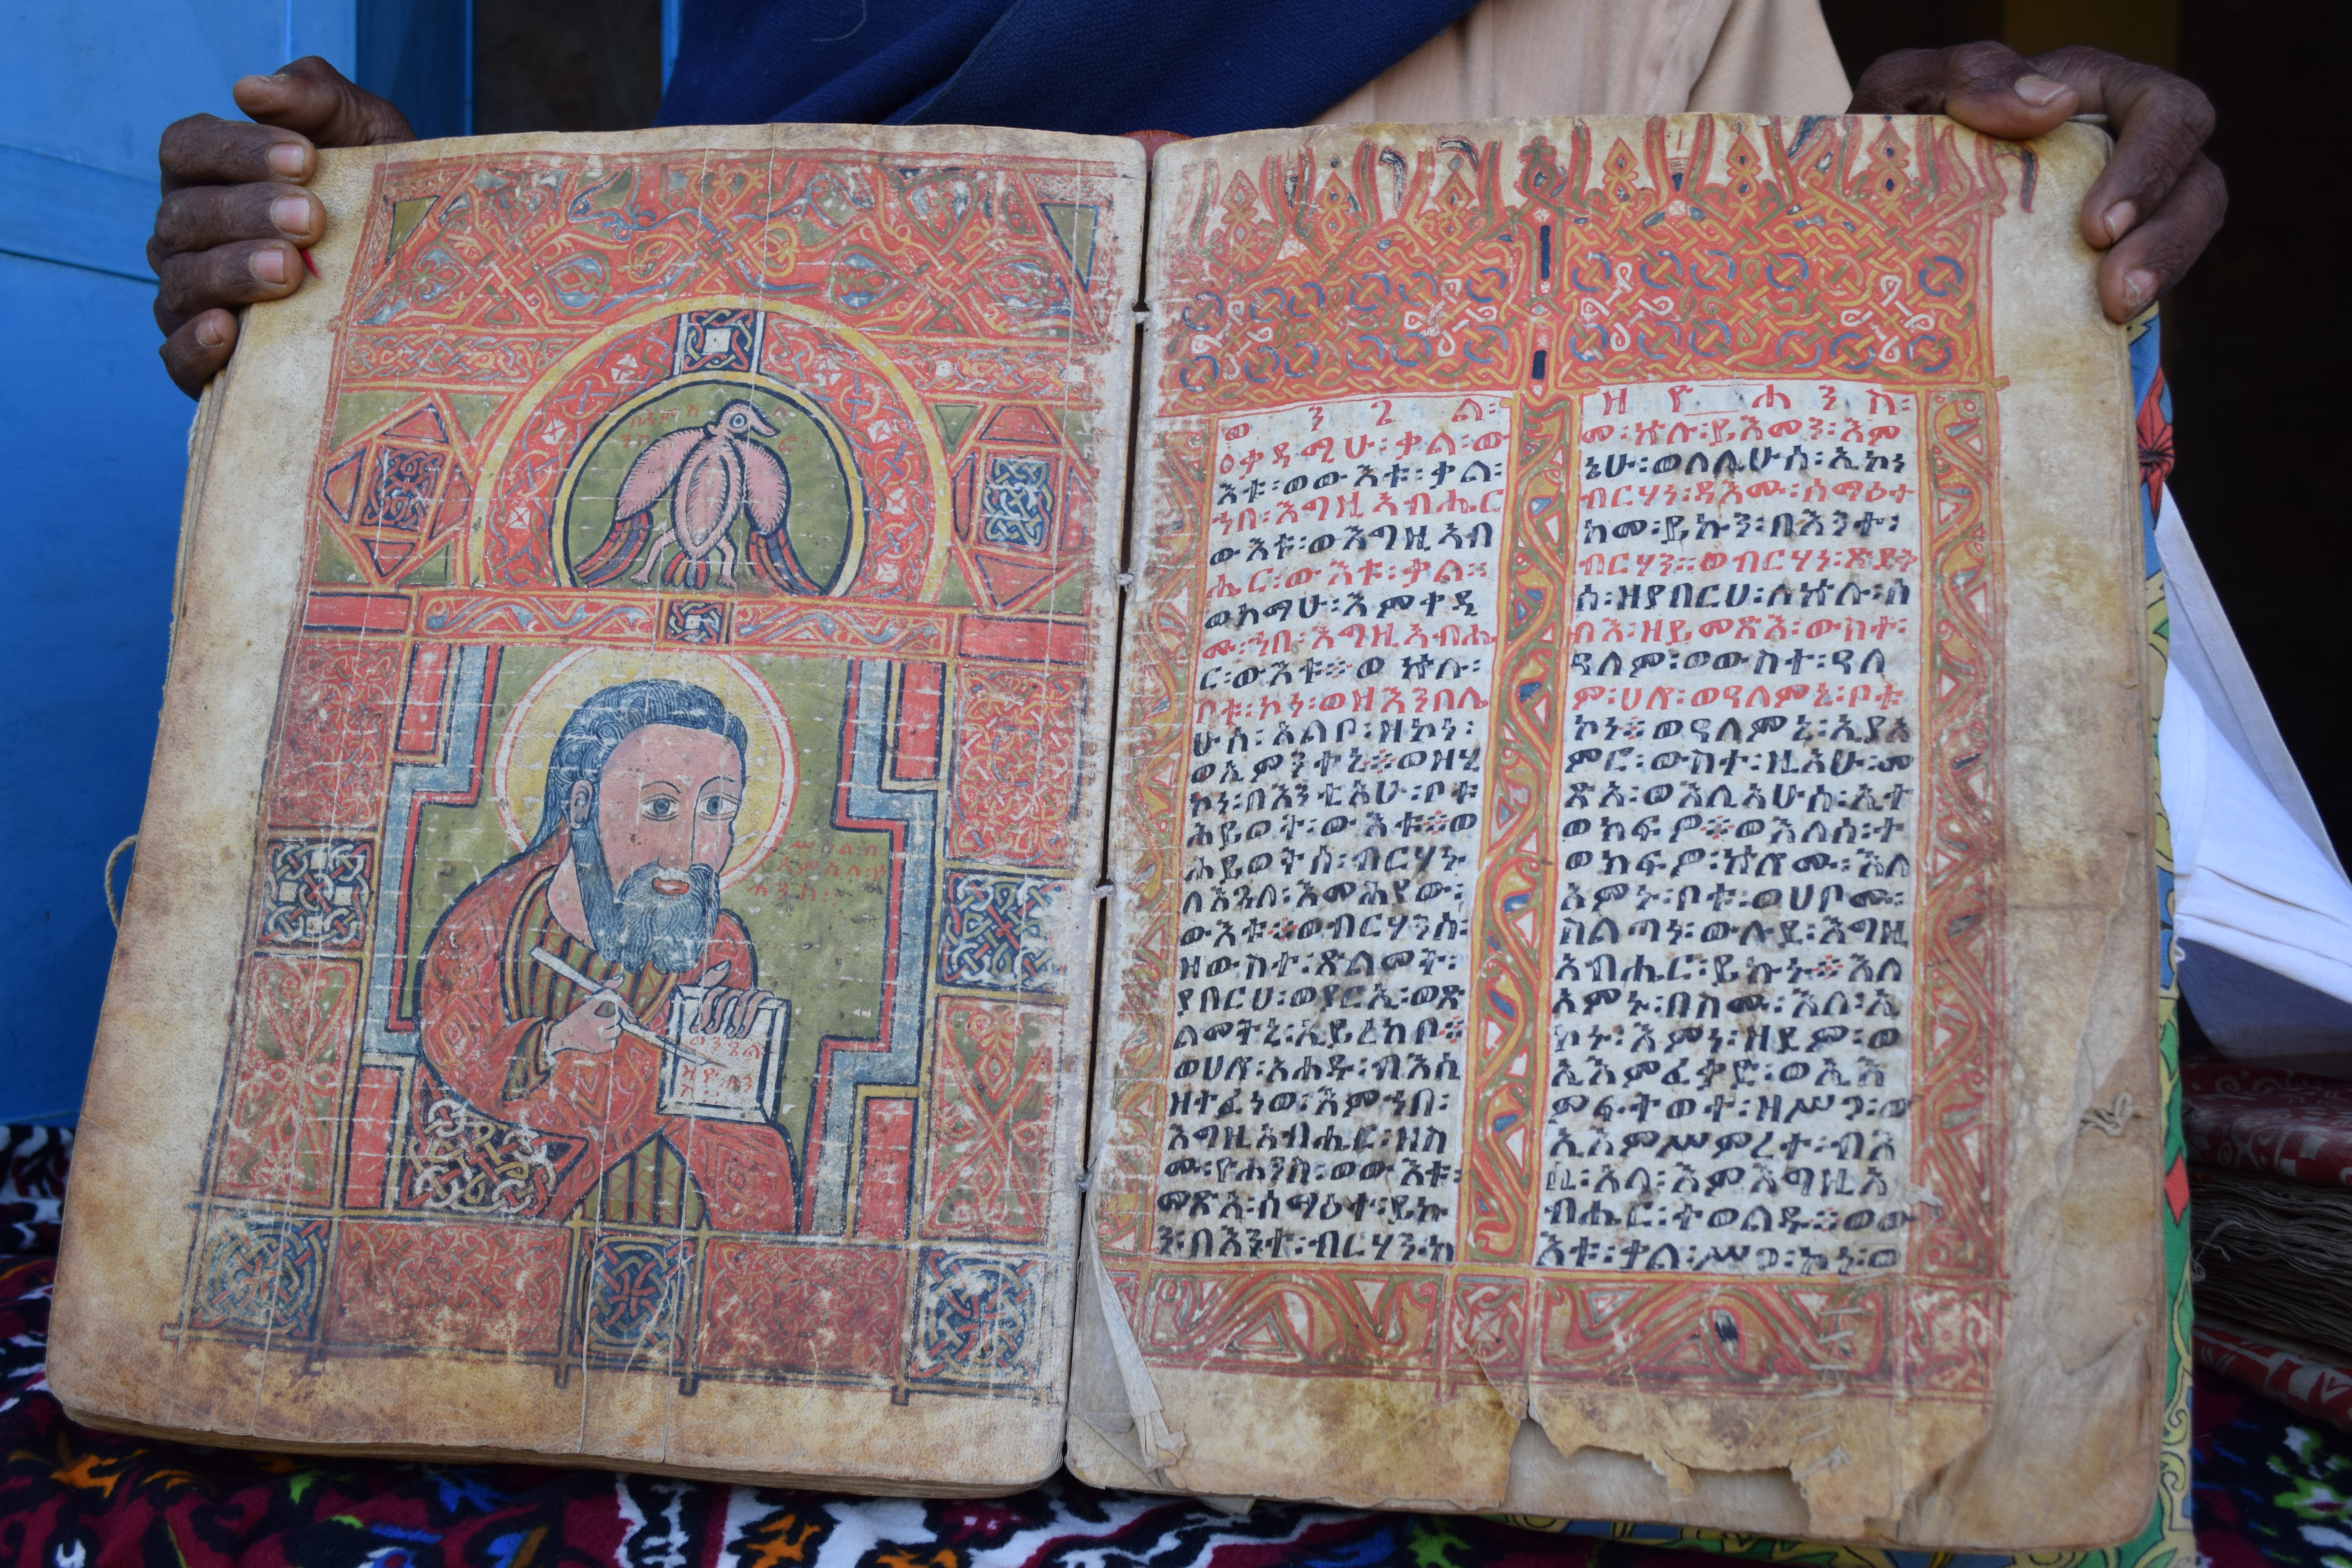 ወንጌል
ዘዮሐን
ስ
ወንጌል፡
ቀዳሚሁ፡ቃል፡ው
እቱ፡ወውእቱ፡ቃል፡
ኀበ፡እግዚአብሔር
ውእቱ፡ወእግዚአብ
ሔር፡ውእቱ፡ቃል፡፡
ወከማሁ፡እምቀዲ
ሙ፡ኀበ፡እግዚአብሔ
ር፡ውእቱ፡፡ወኵሉ፡
ቦቱ፡ኮነ፡ወዘእንበሌ
ሁሰ፡አልቦ፡ዘኮነ፡
ወኢምንተኒ፡፡ወዘሂ
ኮነ፡በእንቲአሁ፡ቦቱ
ሕይወት፡ውእቱ፡፡ወ
ሕይወትሰ፡ብርሃኑ
ለእጓለ፡እመሕያው፡
ውእቱ፡፡ወብርሃንሰ፡
ዘውስተ፡ጽልመት፡
ያበርህ፡ወያርኢ፡ወጽ
ልመትኒ፡ኢይረክቦ፡፡
ወሀሎ፡አሐዱ፡ብእሲ
ዘተፈነወ፡እምኀበ፡
እግዚአብሔር፡ዘስ
ሙ፡ዮሐንስ፡ወውእቱ፡
መጽአ፡ሰማዕተ፡ይኩ
ን፡በእንተ፡ብርሃን፡ከ
ዘዮሐንስ፡
መ፡ኵሉ፡ይእመን፡እም
ኔሁ፡ወለሊሁሰ፡ኢኮነ
ብርሃነ፡ዳእሙ፡ሰማዕተ
ከመ፡ይኩን፡በእንተ፡
ብርሃን፡፡ወብርሃነ፡ጽድቅ
ሰ፡ዘያበርህ፡ለኵሉ፡ሰ
ብእ፡ዘይመጽእ፡ውስተ፡
ዓለም፡ወውስተ፡ዓለ
ም፡ሀሎ፡ወዓለምኒ፡ቦቱ
ኮነ፡፡ወዓለምኒ፡ኢያአ
ምሮ፡ውስተ፡ዚአሁ፡መ
ጽአ፡ወእሊአሁሰ፡ኢተ
ወክፍዎ፡፡ወእለሰ፡ተ
ወክፍዎ፡ኵሎሙ፡እለ
አምኑ፡ቦቱ፡ወሀቦሙ፡
ስልጣነ፡ውሉደ፡እግዚ
አብሔር፡ይኩኑ፡፡እለ
አምኑ፡በስሙ፡እለ፡ኢ
ኮኑ፡እምነ፡ዘደም፡ወ
ኢእምፈቃድ፡ወኢእ
ምፍትወተ፡ዘሥጋ፡ወ
ኢእምሥምረተ፡ብእ
ሲ፡አላ፡እምእግዚአ
ብሔር፡ተወልዱ፡፡ወው
እቱ፡ቃል፡ሥጋ፡ኮነ፡ወ